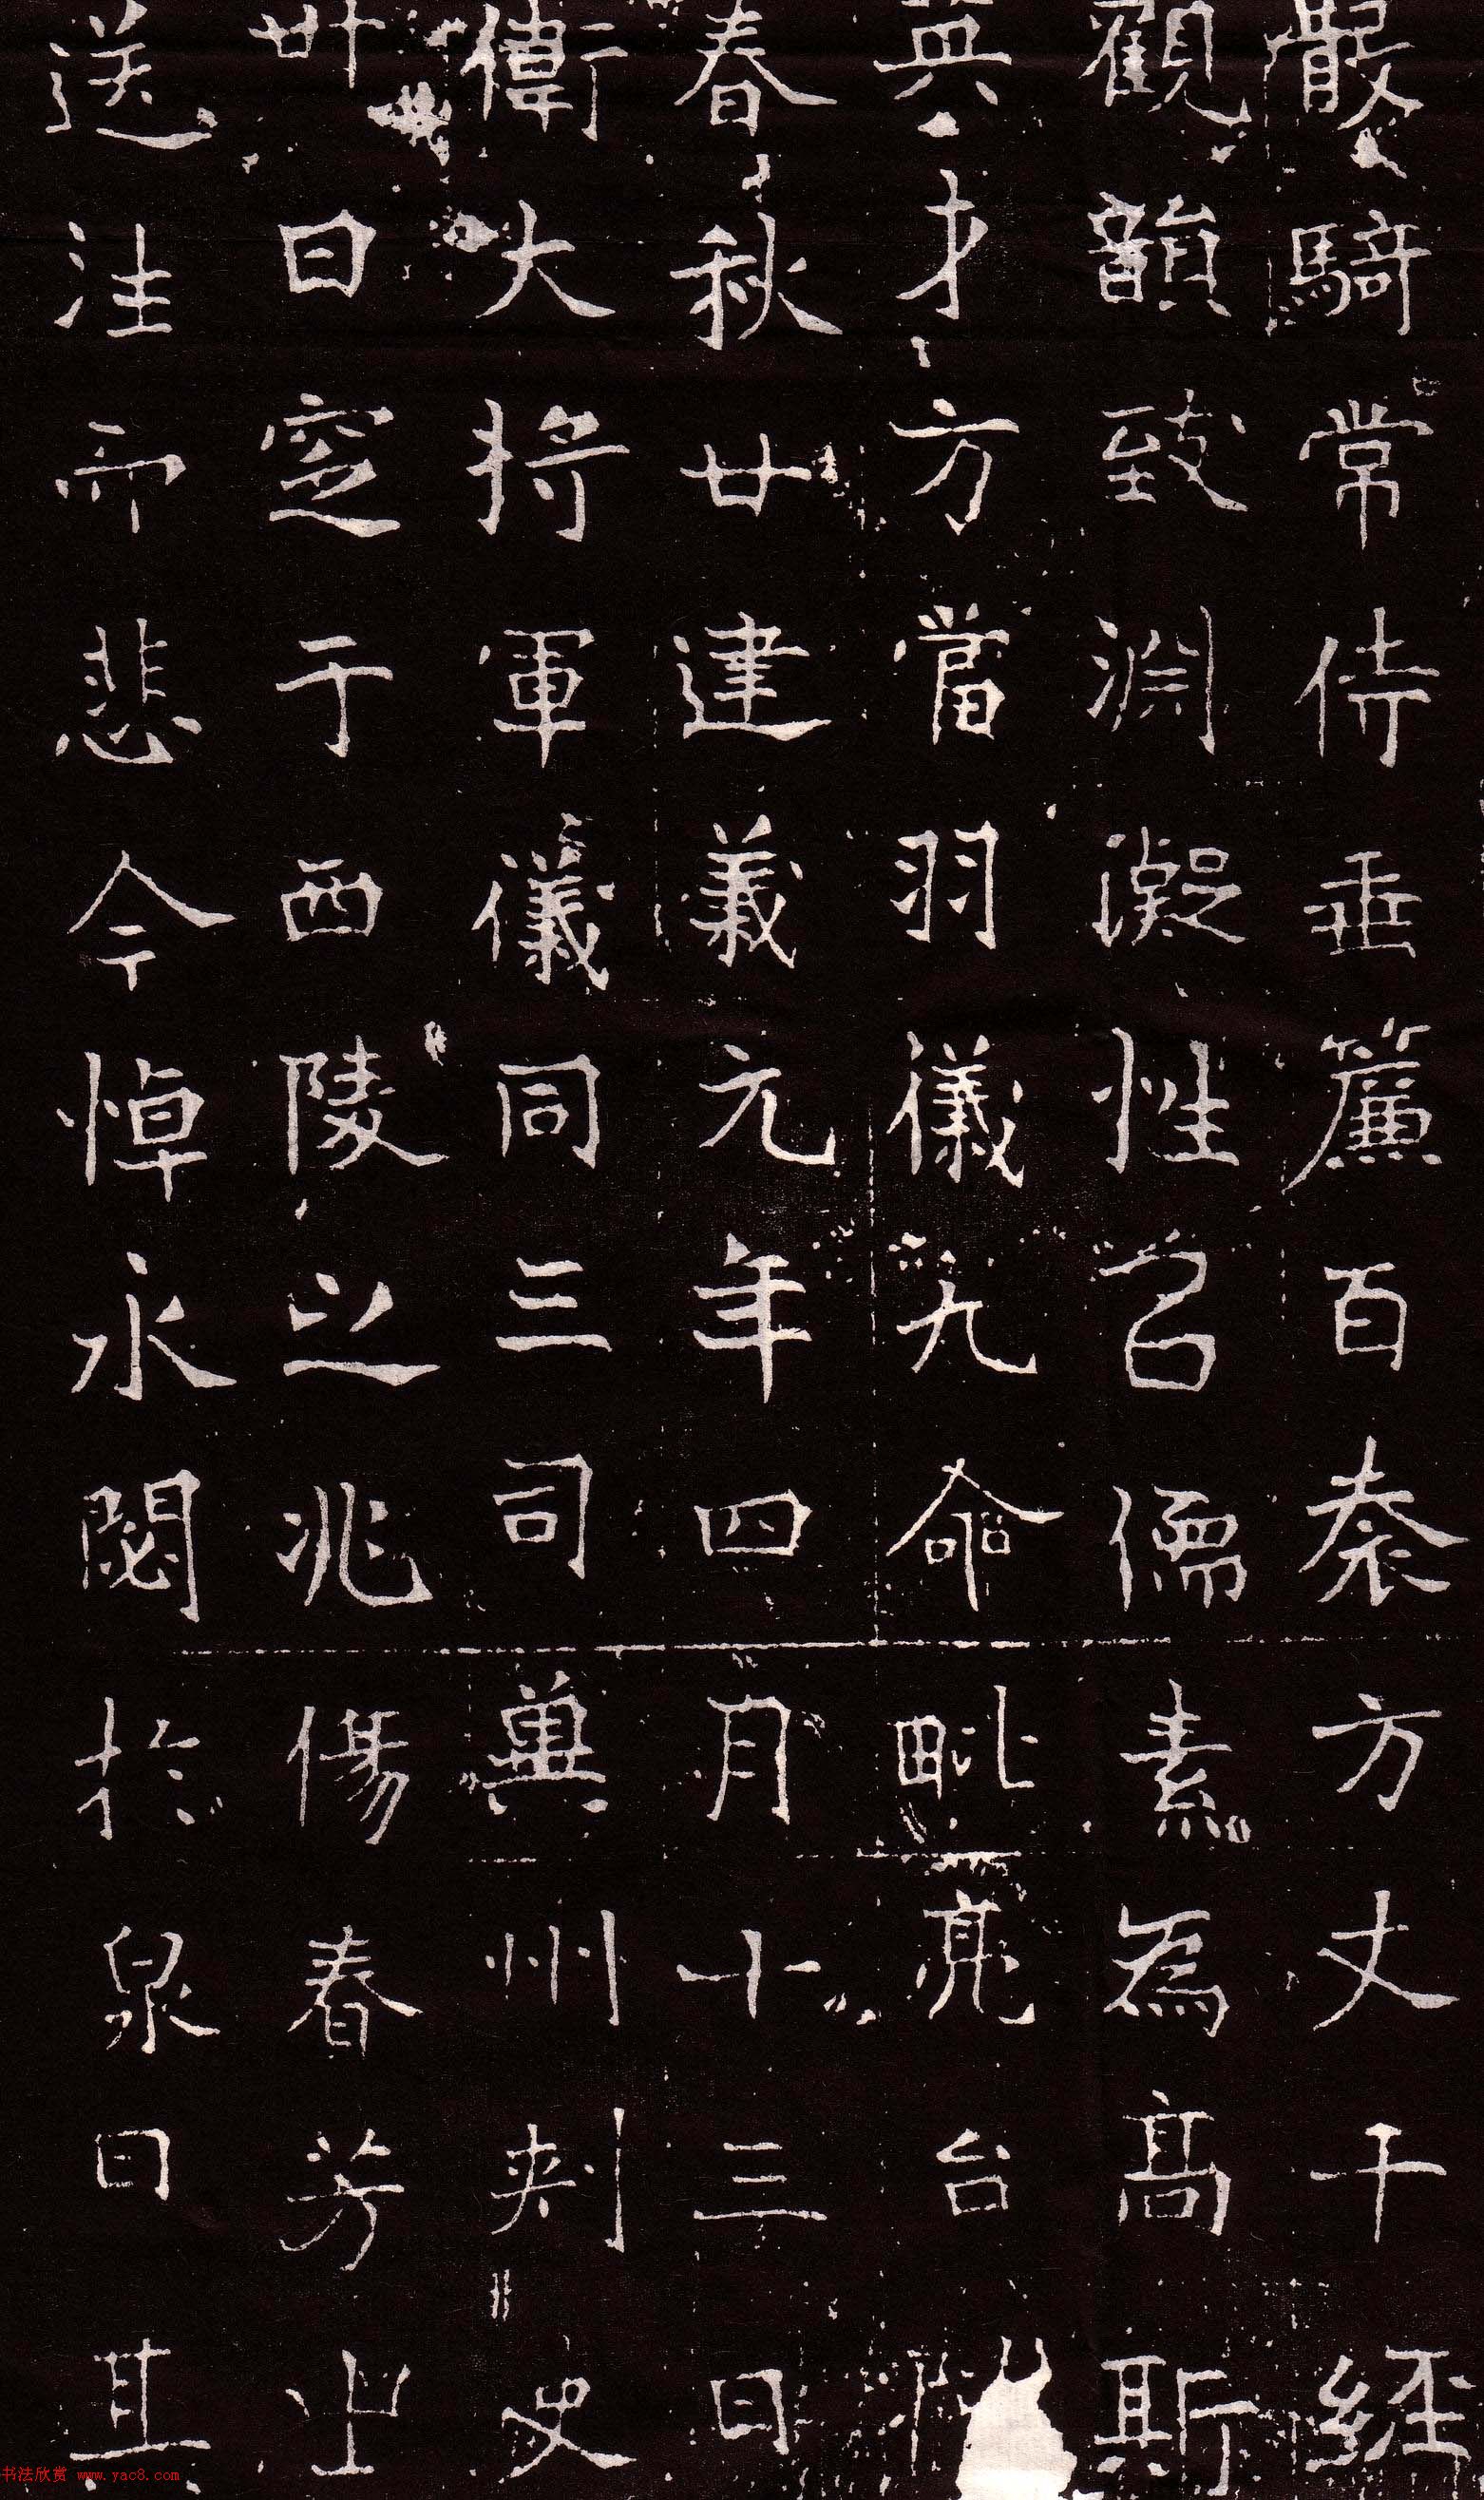 散騎常侍垂簾百袠方丈千經
觀韻致渊凝性召儒素為高斯
英才方當羽儀九命毗亮台
春秋廿建義元年四月十三日
衛大將軍儀同三司兾州刺史
卅日窆于西陵之兆傷春芳之
送注而悲今悼永閟於泉曰其
书法欣赏 www.yac8.com